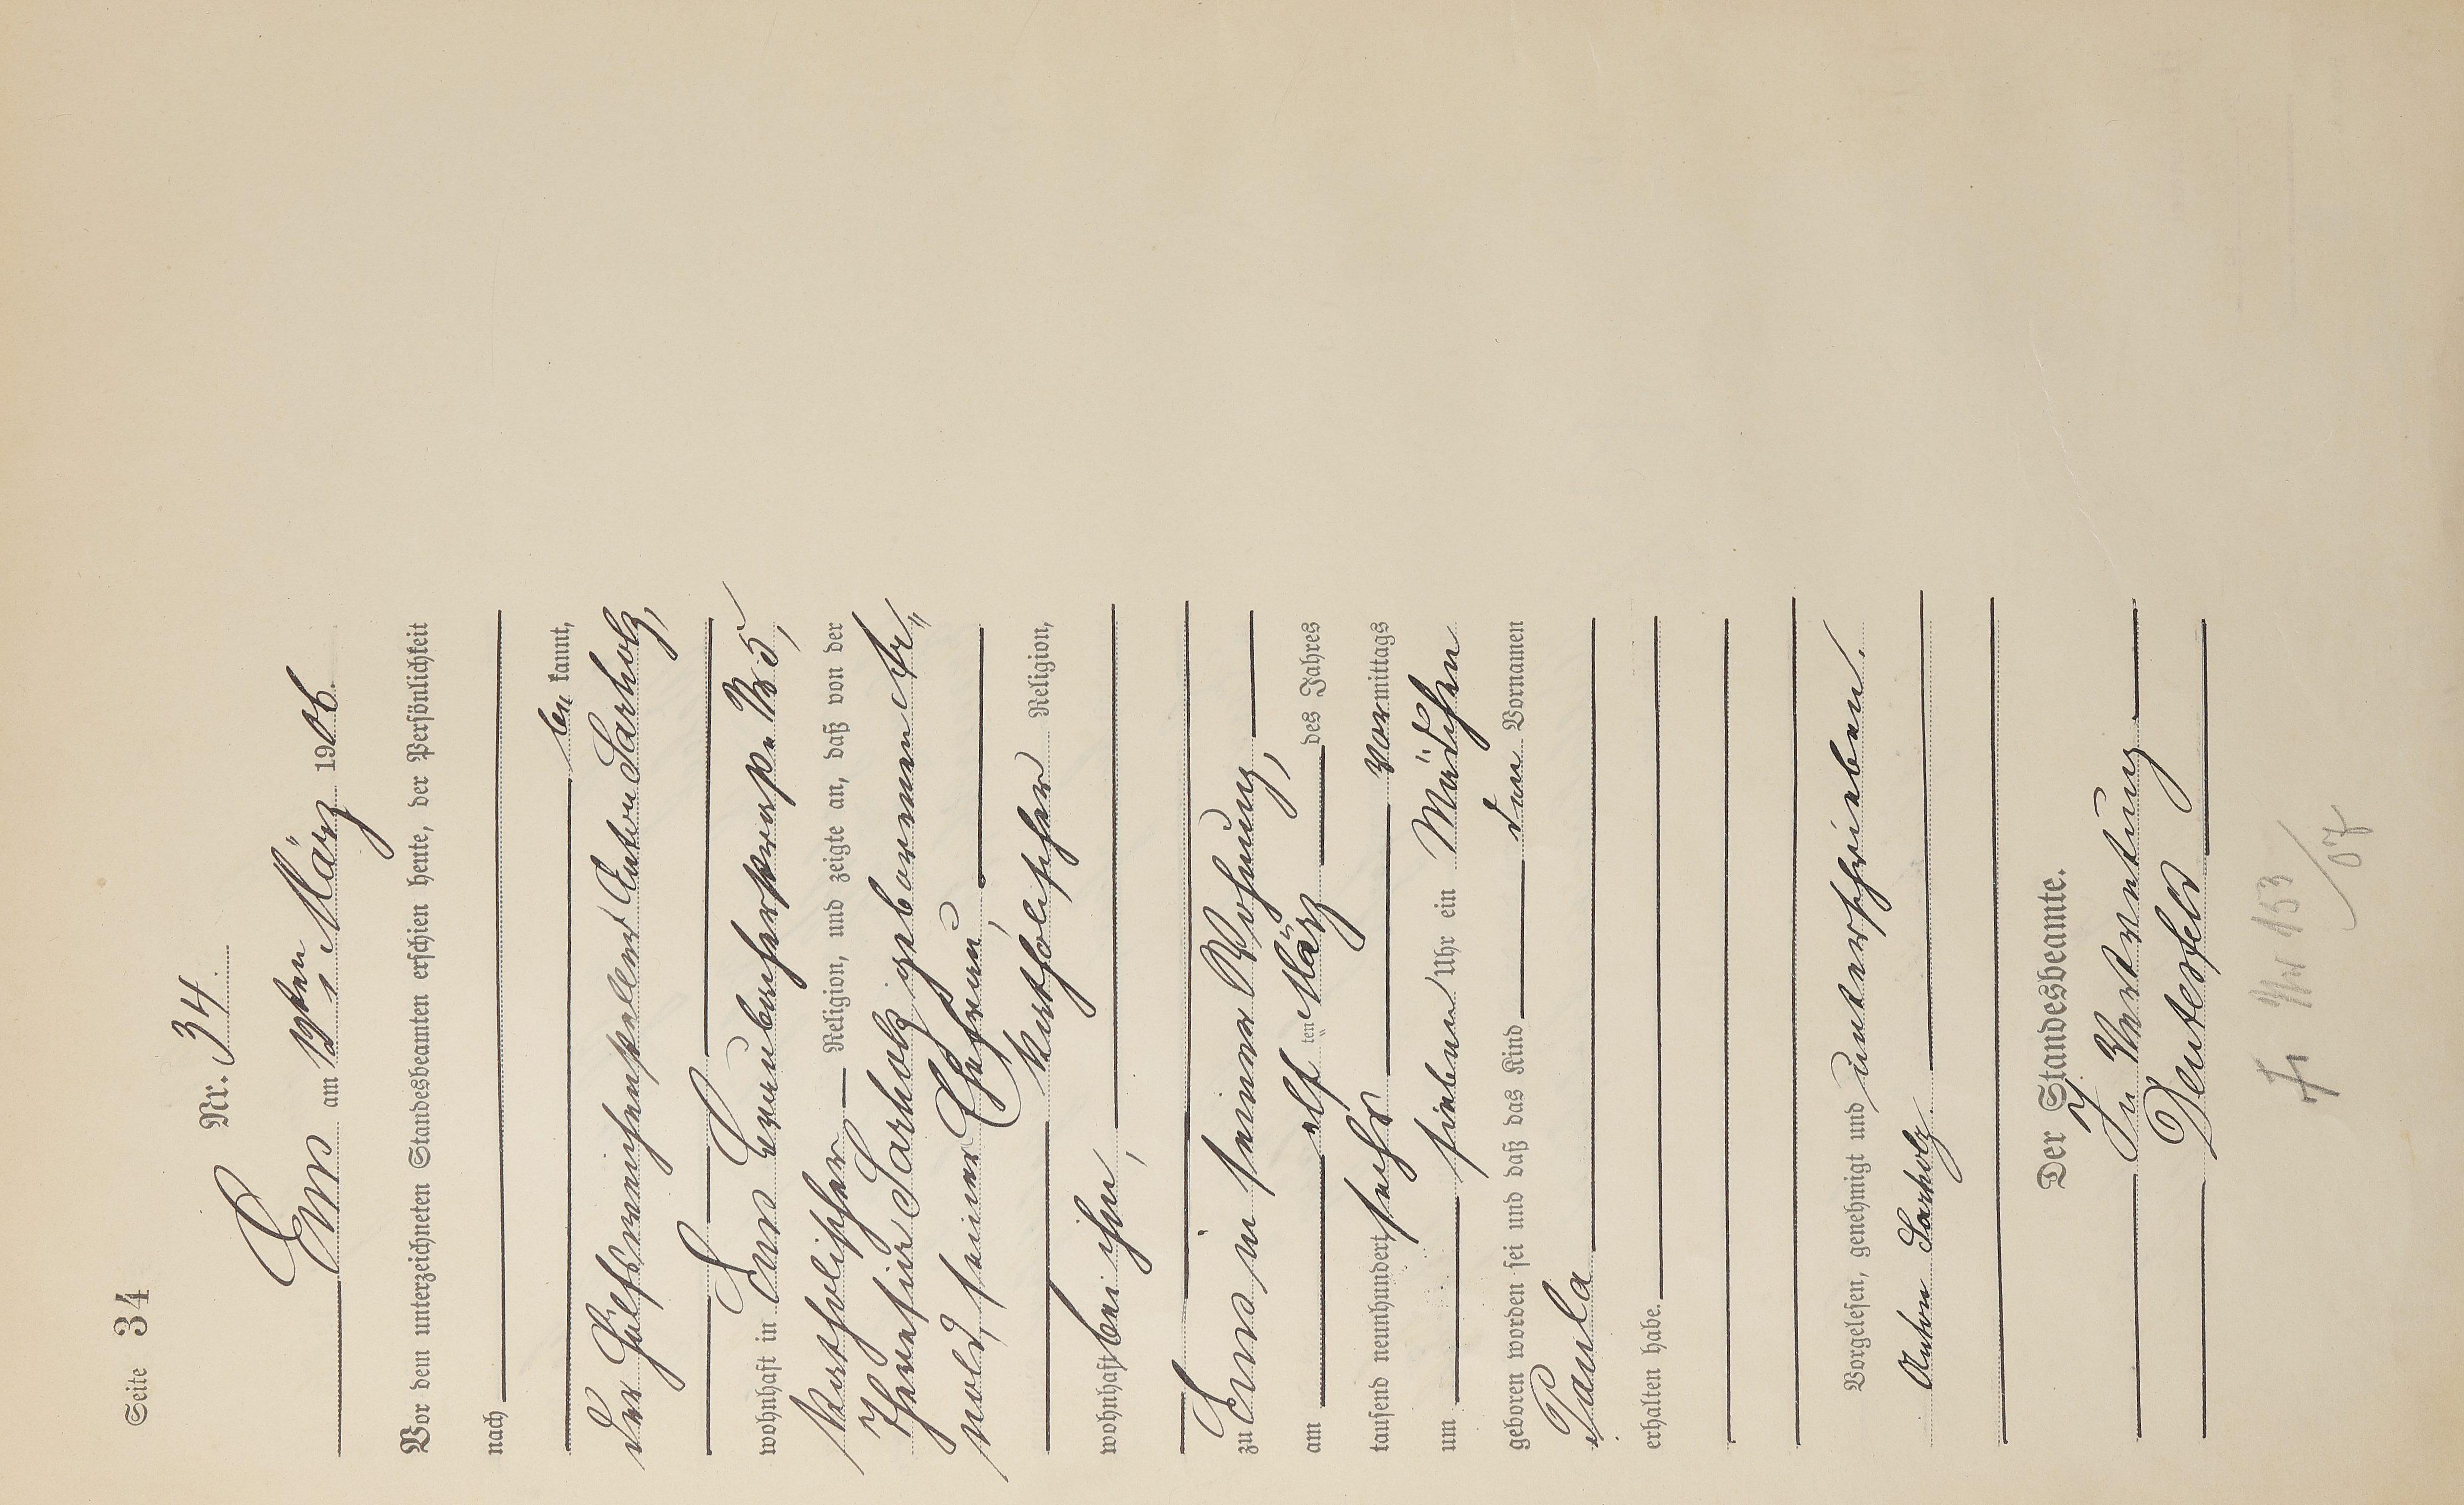 Seite 34
Nr. 34.
Ems am 12ten März 1906.
Vor dem unterzeichneten Standesbeamten erschien heute, der Persönlichkeit
nach
be kannt,
der Hülfsweichensteller Anton Sarholz,
wohnhaft in Ems
katholischer Religion, und zeigte an, daß von der
Sarholz geborenen Ar„
nold, seiner Ehefrau,
katholischer Religion,
wohnhaft bei ihm,
zu Ems in seiner Wohnung,
am elf ten März des Jahres
tausend neunhundert sechs Vormittags
um sieben Uhr ein Mädchen
geboren worden sei und daß das Kind den Vornamen
Paula
erhalten habe.
Vorgelesen, genehmigt und unterschrieben.
Anton Sarholz.
Der Standesbeamte.
In Vertretung
153/07